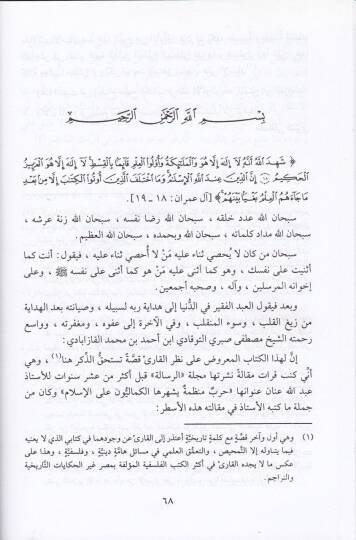 بسم الله الرحمن الرحيم
﴿ شَهِدَ اللَّهُ أَنَّهُ لَا إِلَهَ إِلَّا هُوَ وَالْمَلَائِكَةُ وَأُولُوا الْعِلْمِ قَائِمًا بِالْقِسْطِ لَا إِلَهَ إِلَّا هُوَ الْعَزِيزُ
الْحَكِيمُ ۝١٨ إِنَّ الدِّينَ عِنْدَ اللَّهِ الْإِسْلَامُ وَمَا اخْتَلَفَ الَّذِينَ أُوتُوا الْكِتَابَ إِلَّا مِنْ بَعْدِ
مَا جَاءَهُمُ الْعِلْمُ بَغْيًا بَيْنَهُمْ ﴾ [آل عمران: ١٨ ـ ١٩].
سبحان الله عدد خلقه ، سبحان الله رضا نفسه ، سبحان الله زنة عرشه ،
سبحان الله مداد كلماته ، سبحان الله وبحمده ، سبحان الله العظيم .
سبحان من كان لا يُحصي ثناء عليه مَنْ لا أُحصي ثناء عليه ، فيقول: أنت كما
أثنيت على نفسك ، وهو كما أثنى عليه مَنْ هو كما أثنى على نفسه ﷺ ، وعلى
إخوانه المرسلين ، وآله ، وصحبه أجمعين.
وبعد فيقول العبد الفقير في الدُّنيا إلى هداية ربه لسبيله ، وصيانته بعد الهداية
من زيغ القلب ، وسوء المنقلب ، وفي الآخرة إلى عفوه ، ومغفرته ، وواسع
رحمته الشيخ مصطفى صبري التوقادي ابن أحمد بن محمد القازابادي:
إنَّ لهذا الكتاب المعروض على نظر القارئ قصَّةً تستحقُّ الذِّكر هنا(١) ، وهي
أنِّي كنت قرأت مقالةً نشرتها مجلة «الرسالة» قبل أكثر من عشر سنوات للأستاذ
عبد الله عنان عنوانها «حربٌ منظمةٌ يشهرها الكماليُّون على الإسلام» وكان من
جملة ما كتبه الأستاذ في مقالته هذه الأسطر:
(١) وهي أول وآخر قصَّةٍ مع كلمةٍ تاريخيَّةٍ أعتذر إلى القارئ عن وجودهما في كتابي الذي لا يعنيه
فيما يتناوله إلا التَّمحيص ، والتعمُّق العلمي في مسائل هامَّةٍ دينيَّةٍ ، وفلسفيَّةٍ ، وهذا على
عكس ما لا يجده القارئ في أكثر الكتب الفلسفية المؤلفة بمصر غير الحكايات التَّاريخية
والتراجم.
٦٨